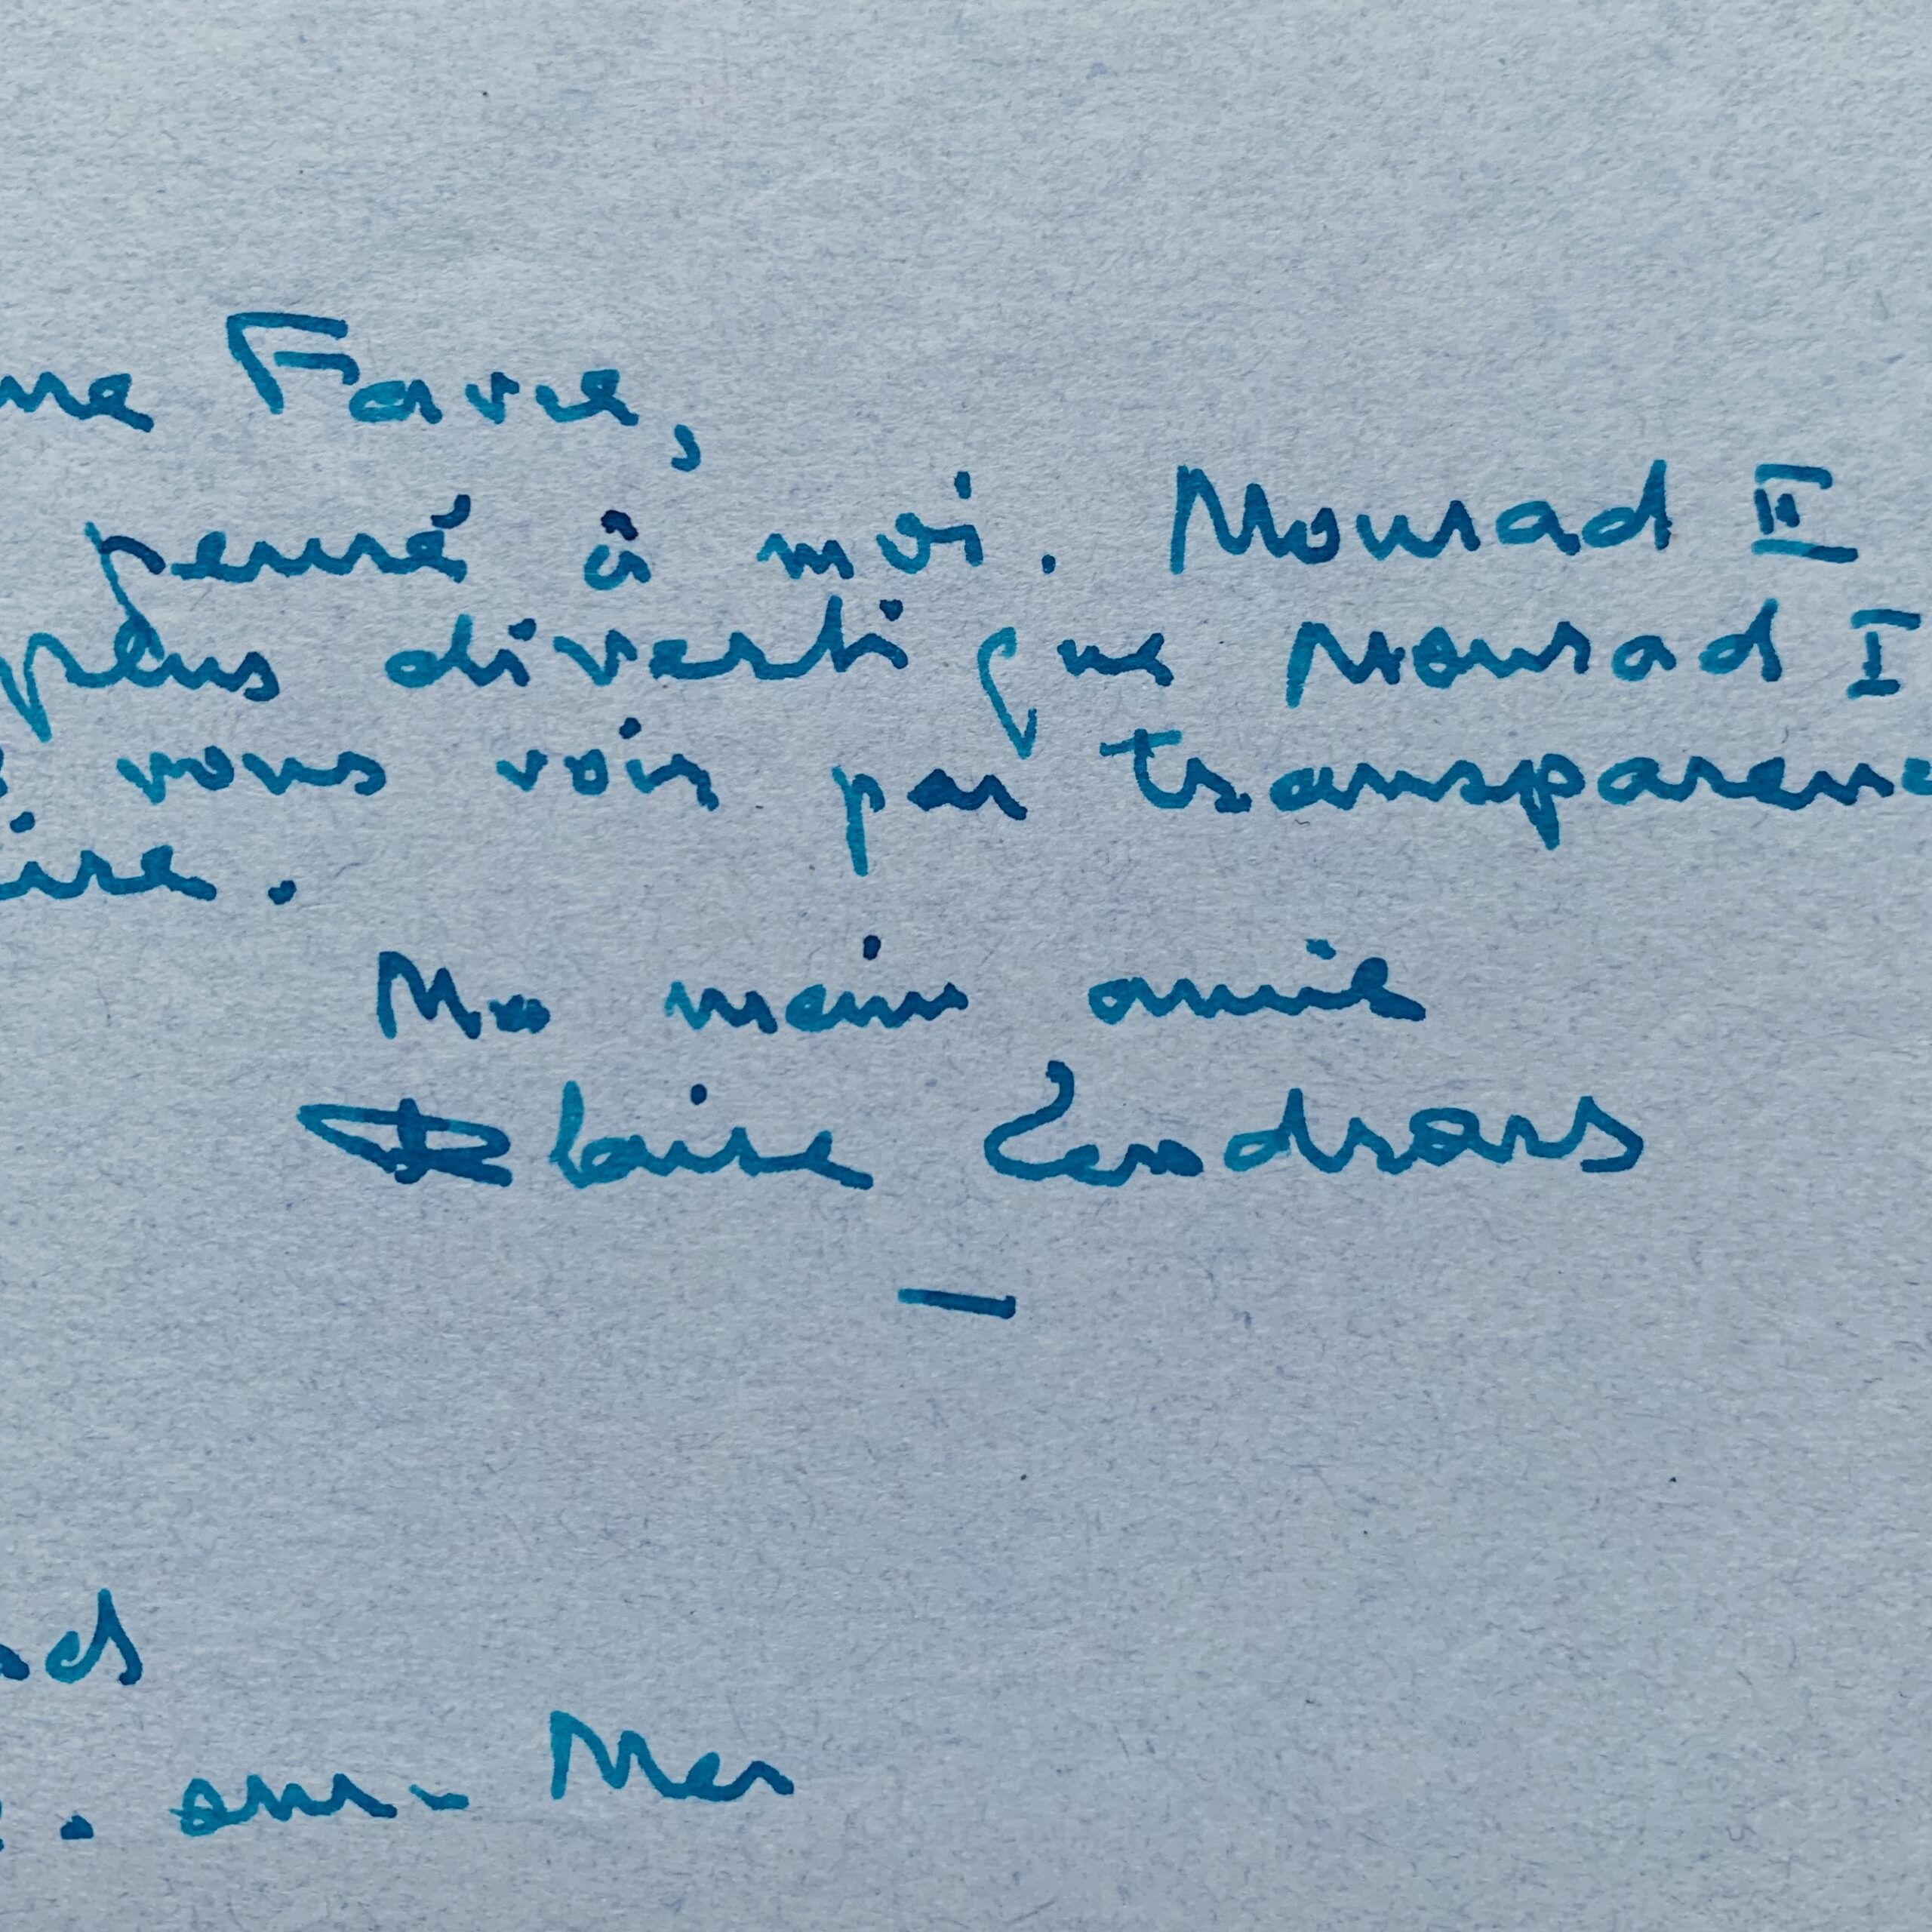 me Favre,
pensé à moi. Mourad II
plus diverti que Mourad I
vous vois par transparenc
ire.
Ma main amie
Blaise Cendrars
—
d
. sur-Mer